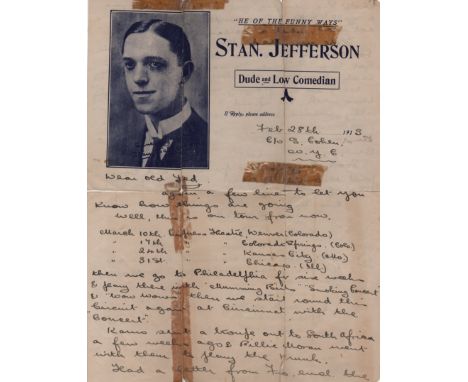 "HE OF THE FUNNY WAYS"
STAN. JEFFERSON
Dude and Low Comedian
If Reply, please address
Feb 28th 1913
c/o S. Cohen
N.Y.C
Dear old Ted
again a few lines to let you
know how things are going
Well, this is our tour from now,
March 10th Empress Theatre Denver (Colorado)
" 17th " Colorado Springs. (Colo)
" 24th " Kansas City (Mo)
" 31st " Chicago. (Ill)
then we go to Philadelphia for six weeks
& play there with "Mumming Birds" "Smoking Concert"
& "Wow Wows" then we start round this
circuit again at Cincinnati with the
Concert".
Karno sent a troupe out to South Africa
a few weeks ago & Billie Moran went
with them to play the drunk.
Had a letter from and the